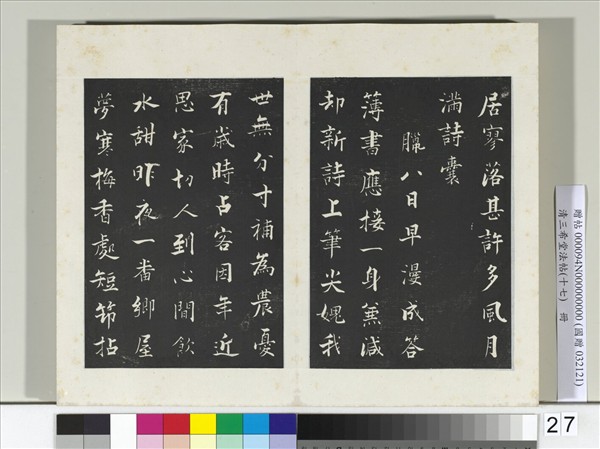 居寥落甚許多風月
滿詩囊
臘八日早漫成答
薄書應接一身兼減
却新詩上筆尖媿我
世無分寸補為農憂
有歲時占客因年近
思家切人到心閒飲
水甜昨夜一番鄉屋
夢寒梅香處短筇拈
贈帖 000094N000000000 (國贈 032121)
清三希堂法帖(十七) 冊
27